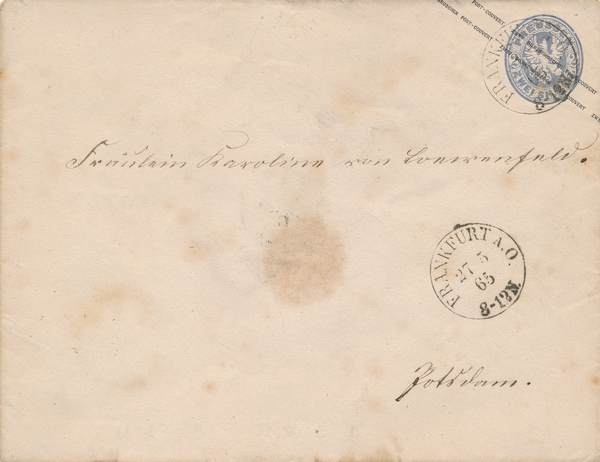 POST-COUVERT POST-COUVERT
PREUSSEN
FRANKFURT A.O.
8-12N.
Fräulein Karoline von Loewenfeld.
FRANKFURT A.O.
27 5
65
8-12N.
Potsdam.